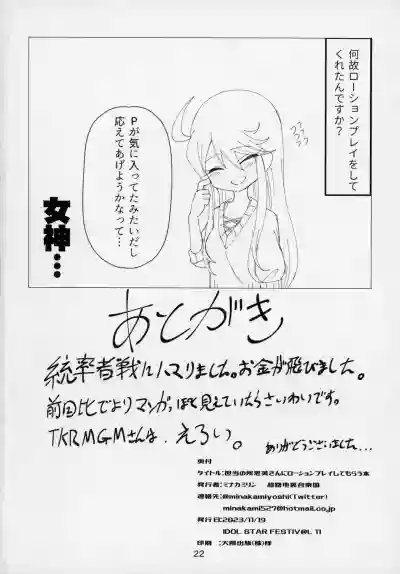 何故ローションプレイをして
くれたんですか?
Pが気に入ってたみたいだし
応えてあげようかなって…
フフフフ
女神…
あとがき
統率者戦にハマりました。お金が飛びました。
前回比でよりマンガっぽく見えていたらさいわいです。
TKRMGMさんは、えろい。
ありがとうございました…
奥付
タイトル:担当の所恵美さんにローションプレイしてもらう本
発行者:ミナカミリン
連絡先:@minakamiyoshi(Twitter)
minakami527@hotmail.co.jp
発行日:2023/11/19
IDOL STAR FESTIV@L 11
印刷:大陽出版(株)様
22